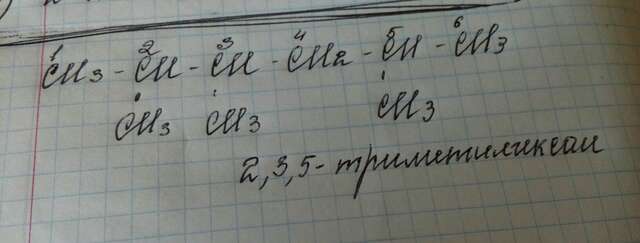 1 2 3 4 5 6
CH3 - CH - CH - CH2 - CH - CH3
CH3 CH3 CH3
2,3,5-триметилгексан